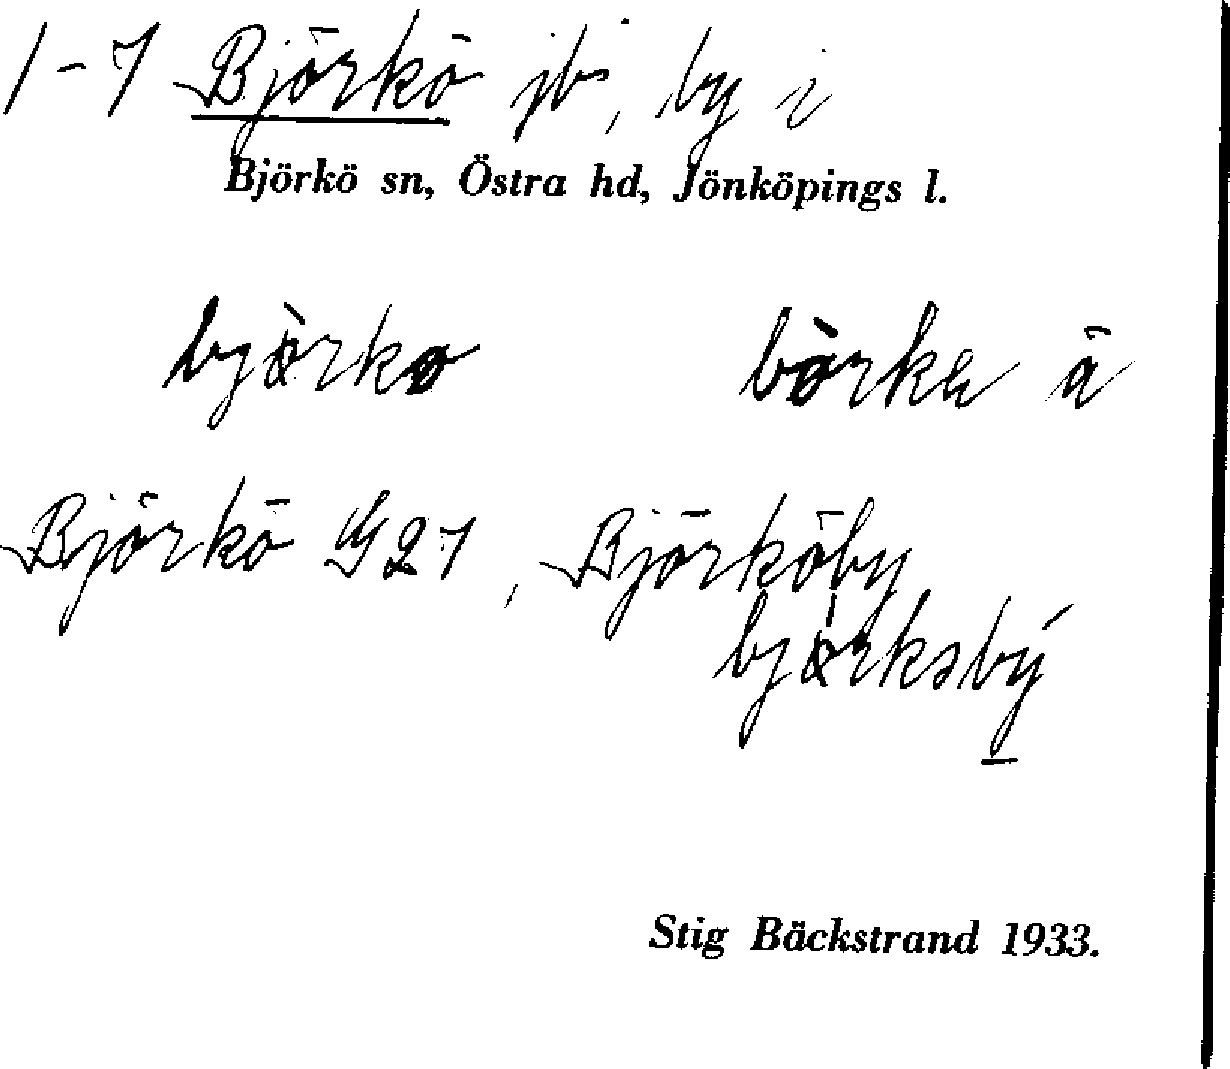 1-7 Björkö jb, by i
Björkö sn, Östra hd, Jönköpings l.
bjòrkø bòrka ä
Björkö G27, Björköby
bjørkəbý
Stig Bäckstrand 1933.